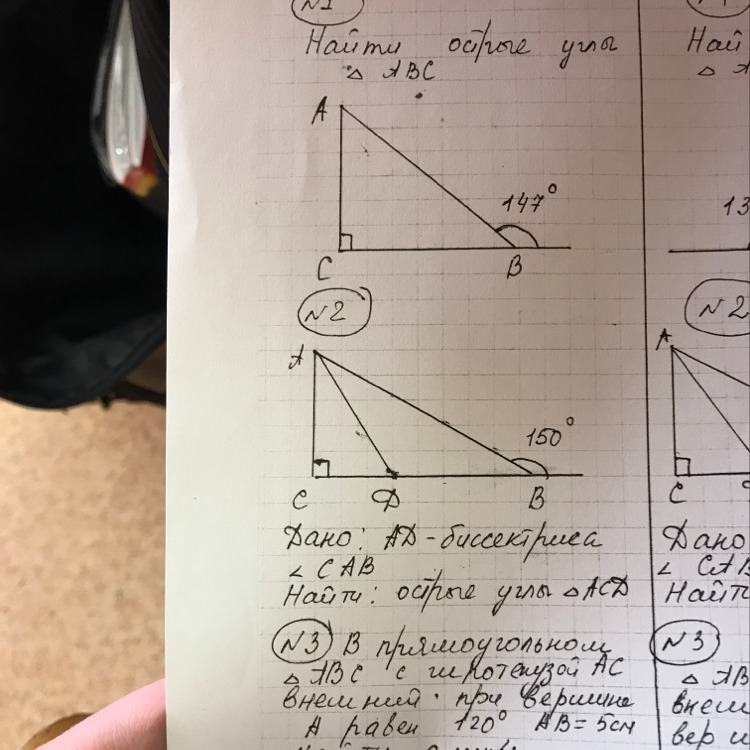 N1
Найти острые углы
△ ABC
A
147°
C
B
N2
A
150°
C
D
B
Дано: AD - биссектриса
∠ CAB
Найти: острые углы △ACD
N3 В прямоугольном
△ ABC с гипотенузой AC
внешний при вершине
A равен 120° AB = 5см
Най
△
13
N2
A
C
Дано
∠ CAB
Найт
N3
△ AB
внеш
верш